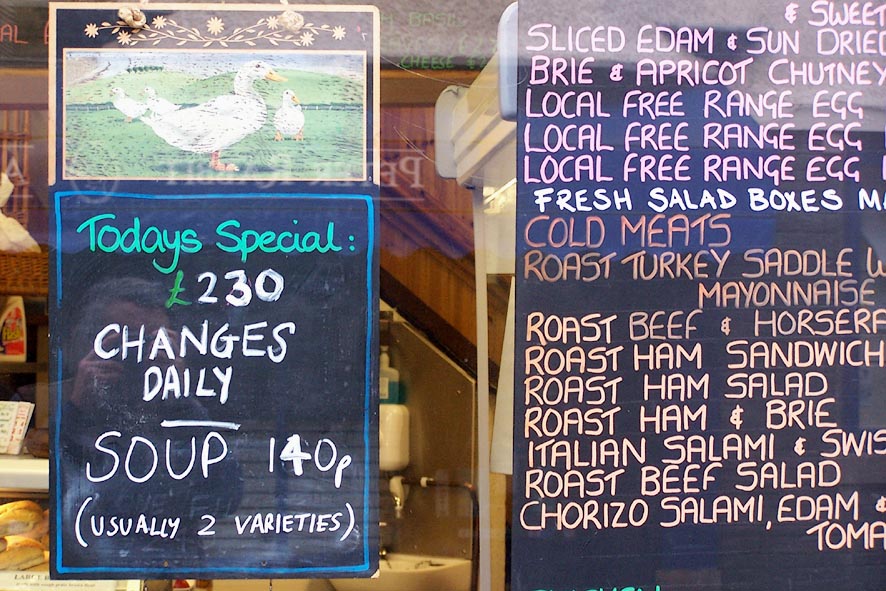 Todays Special:
£230
CHANGES
DAILY
SOUP 140p
(USUALLY 2 VARIETIES)
& SWEET
SLICED EDAM & SUN DRIED
BRIE & APRICOT CHUTNEY
LOCAL FREE RANGE EGG
LOCAL FREE RANGE EGG
LOCAL FREE RANGE EGG
FRESH SALAD BOXES
COLD MEATS
ROAST TURKEY SADDLE
MAYONNAISE
ROAST BEEF & HORSERA
ROAST HAM SANDWICH
ROAST HAM SALAD
ROAST HAM & BRIE
ITALIAN SALAMI & SWIS
ROAST BEEF SALAD
CHORIZO SALAMI, EDAM &
TOMA
BASIL
CHEESE
LARGE